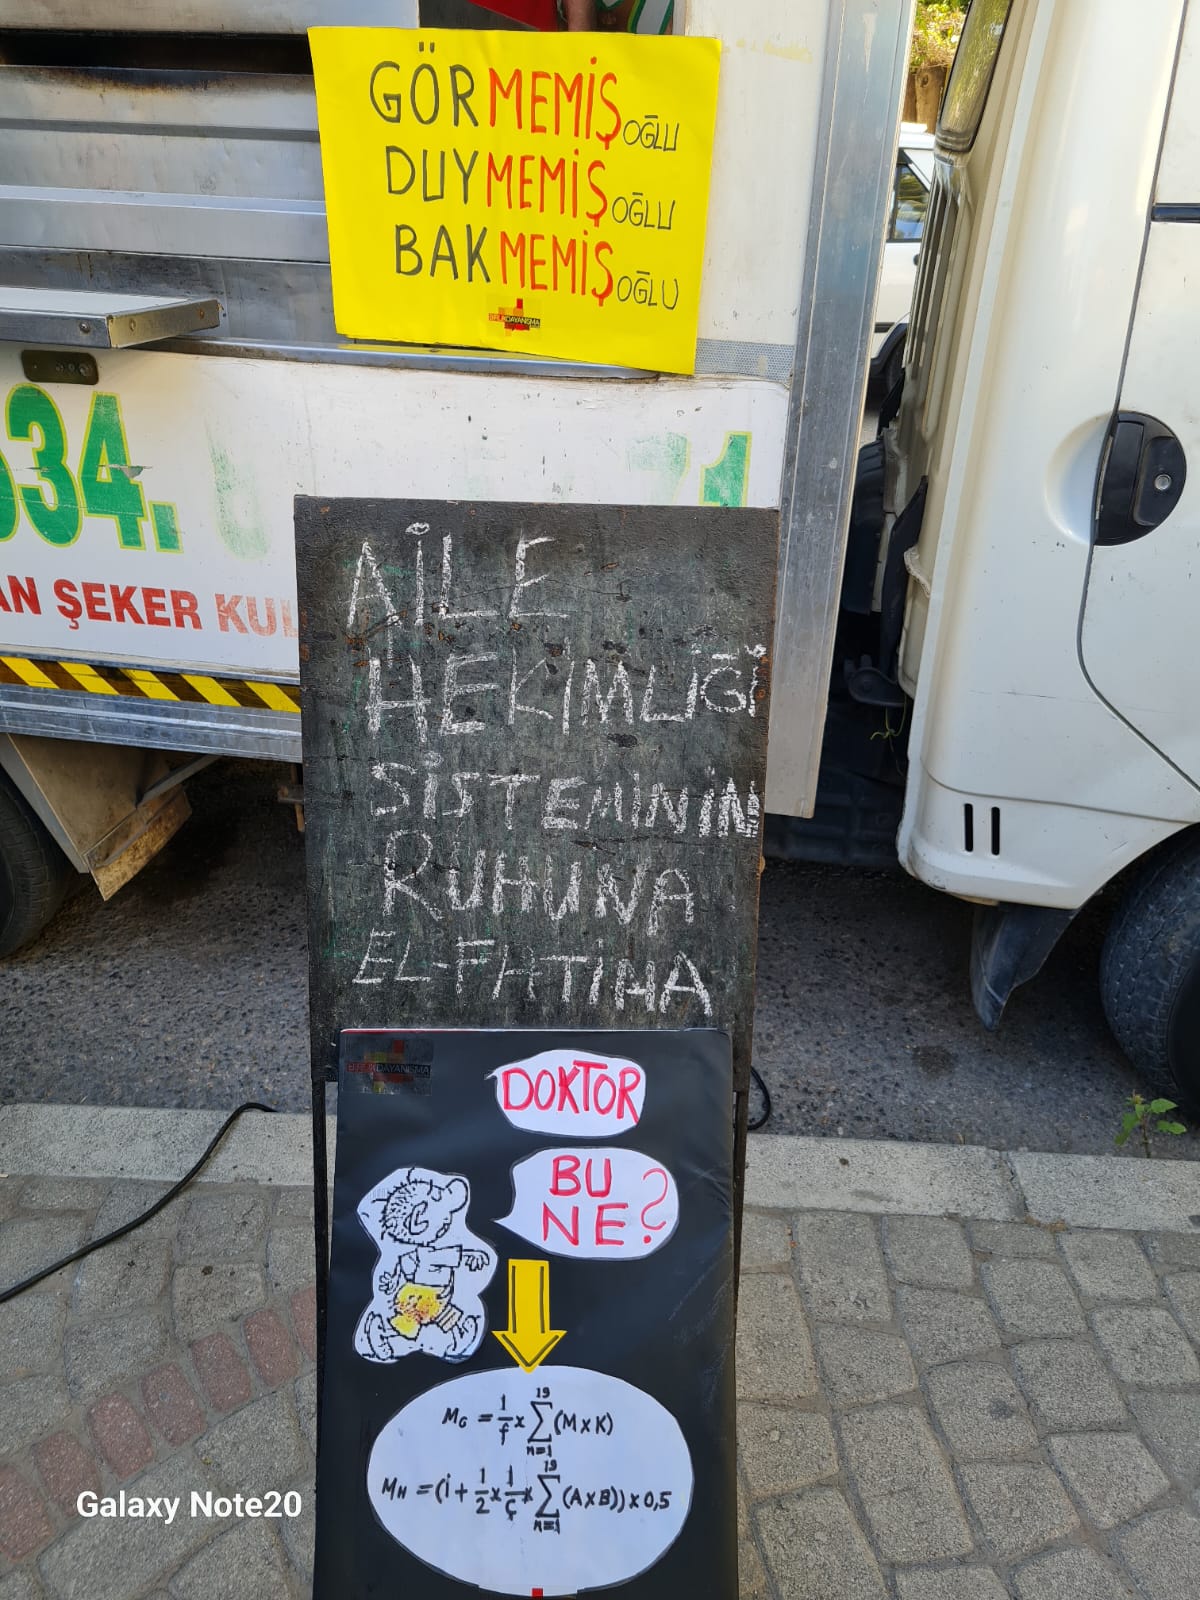 GÖRMEMİŞOĞLU
DUYMEMİŞOĞLU
BAKMEMİŞOĞLU
BİRLİKDAYANIŞMA
34.
71
AN ŞEKER KUL
AİLE
HEKİMLİĞİ
SİSTEMİNİN
RUHUNA
EL-FHTİHA
BİRLİKDAYANIŞMA
DOKTOR
BU
NE?
MG = 1/f x 19∑n=1 (M x K)
MH = (İ + 1/2 x 1/Ç x 19∑n=1 (A x B)) x 0,5
Galaxy Note20